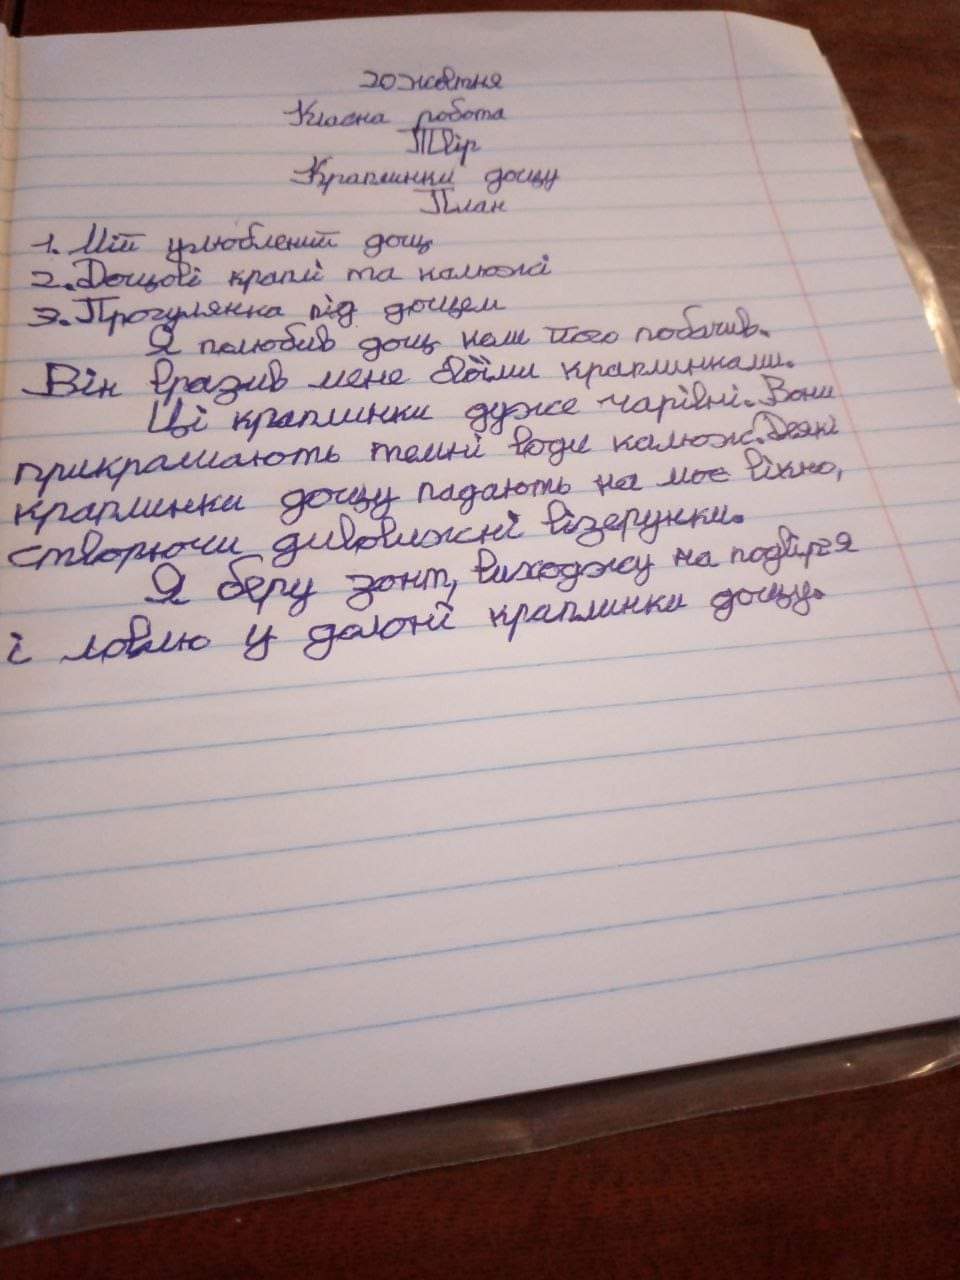 20 жовтня
Класна робота
Твір
Краплинки дощу
План
1. Мій улюблений дощ
2. Дощові краплі та калюжі
3. Прогулянка під дощем
Я полюбив дощ коли його побачив.
Він вразив мене своїми краплинками.
Ці краплинки дуже чарівні. Вони
прикрашають темні води калюж. Деякі
краплинки дощу падають на моє вікно,
створючи дивовижні візерунки.
Я беру зонт, виходжу на подвір'я
і ловлю у долоні краплинки дощу.